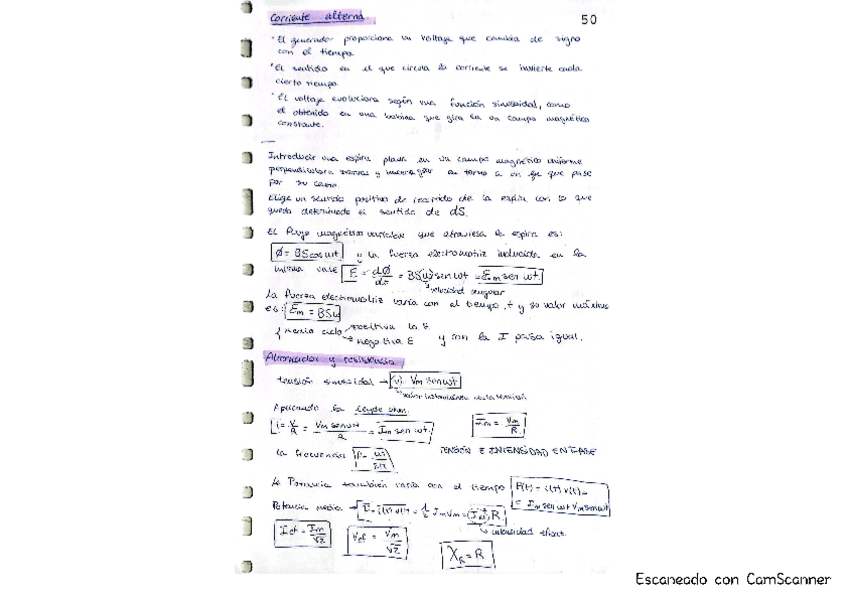 Corriente alterna.
50
· El generador proporciona un voltaje que cambia de signo
con el tiempo.
· El sentido en el que circula la corriente se invierte cada
cierto tiempo.
· El voltaje evoluciona según una función sinusoidal, como
el obtenido en una bobina que gira en un campo magnético
constante.
Introducir una espira plana en un campo magnético uniforme
perpendicular y hacerla girar en torno a un eje que pase
por su centro.
Elige un sentido positivo de recorrido de la espira con lo que
queda determinado el sentido de dS.
El flujo magnético variable que atraviesa la espira es:
Ø = BS cos wt y la fuerza electromotriz inducida en la
misma vale E = dØ = BSw sen wt = Em sen wt
velocidad angular
La fuerza electromotriz varía con el tiempo, t y su valor máximo
es: Em = BSw
medio ciclo positiva la E
negativa E y con la I pasa igual.
Alternador y resistencia
tensión sinusoidal → (v) Vm sen wt
valor instantáneo de la tensión
Aplicando la ley de ohm.
i = V/R = Vm sen wt/R = Im sen wt. Im = Vm/R
la frecuencia TENSIÓN E INTENSIDAD EN FASE
La Potencia también varía con el tiempo P(t) = i(t) v(t) =
= Im sen wt Vm sen wt
Potencia media → = ½ Im Vm = R
intensidad
Ief = Im/√2 Vef = Vm/√2
XR = R
Escaneado con CamScanner